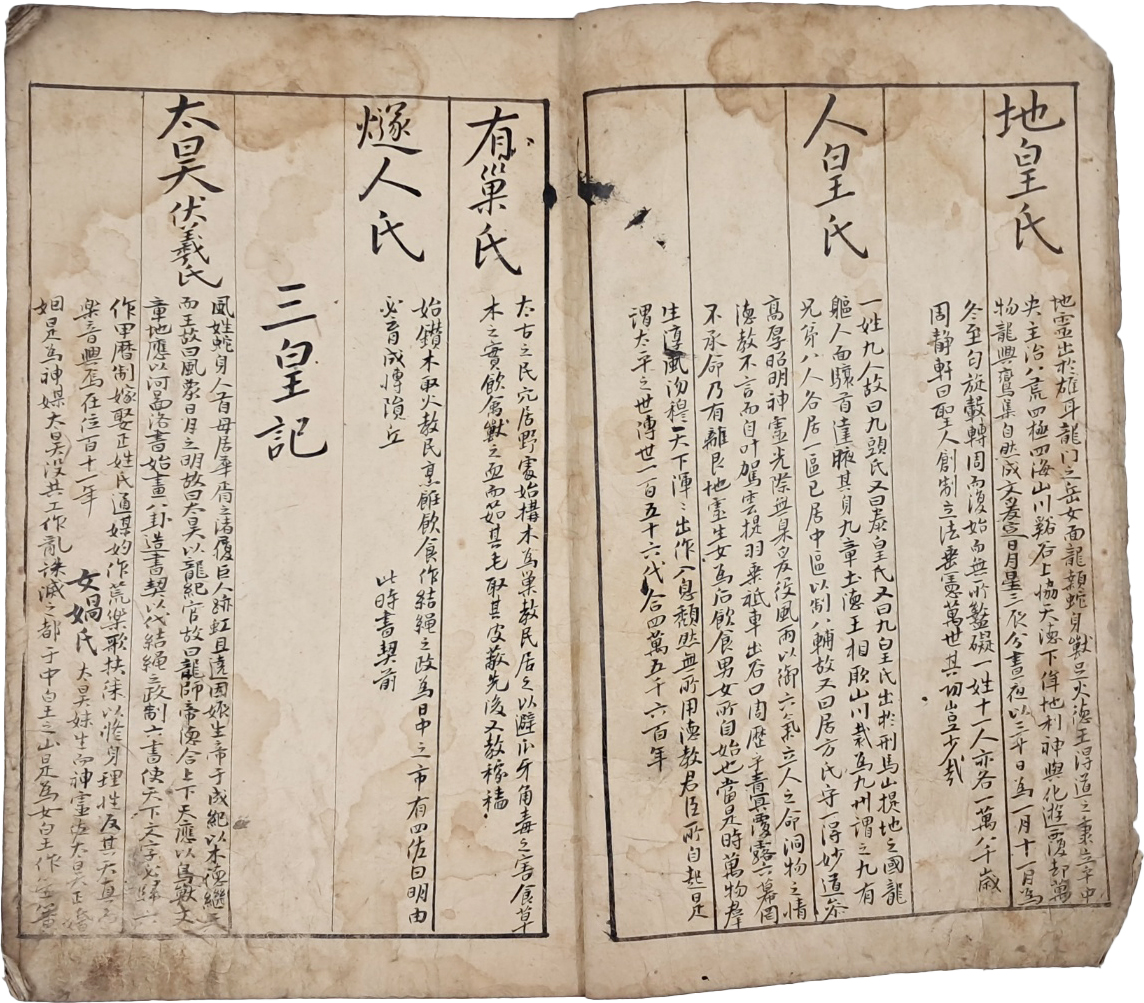 地皇氏
地靈出於雄耳龍门之岳女面龍顙蛇身獸足火德王得道之秉立乎中
央主治八荒四極四海山川谿谷上協天德下侔地利神與化遊覆却萬
物龍興鸞集自然成文爰定日月星三辰分晝夜以三十日為一月十一月為
冬至自旋轂轉周而復始而無所盭礙一姓十一人亦各一萬八千歲
周靜軒曰聖人創制立法垂憲萬世其功豈少哉
人皇氏
一姓九人故曰九頭氏又曰泰皇氏又曰九皇氏出於刑馬山提地之國龍
軀人面驤首達腋其身九章土德王相厥山川裁為九州謂之九有
兄第八人各居一區己居中區以制八輔故又曰居方氏守一得妙道參
高厚昭明神靈光際無臬爰役風雨以御六氣立人之命洞物之情
德教不言而自叶駕雲提羽乘祗車出谷口周歷乎青冥覆露六幕罔
不承命乃有離艮地靈生女為后飲食男女所自始也當是時萬物羣
生淳風沕穆天下渾﹕出作入息頹然無所用德教君臣所自起是
謂太平之世傳世一百五十六代合四萬五千六百年
有巢氏
太古之民穴居野處始構木為巢教民居之以避爪牙角毒之害食草
木之實飲禽獸之血而茹其毛取其皮蔽先後又教稼穡
燧人氏
始鑽木取火教民烹飪飲食作結繩之政為日中之市有四佐曰明由
必育成博隕丘 此時書契前
三皇記
太昊伏羲氏
風姓蛇身人首母居華胥之渚履巨人跡虹且遶因娠生帝于成紀以木德繼天
而王故曰風蒙日月之明故曰太昊以龍紀官故曰龍師帝德合上下天應以鳥獸文
章地應以河啚洛書始畫八卦造書契以代結繩之政制六書使天下文字必歸六
作甲曆制嫁娶正姓氏通媒妁作荒樂歌扶徠以修身理性反其天真而
樂音興焉在位百十一年
女媧氏 太昊妹生而神靈佐太昊正婚
姻是為神媒太昊沒共工作亂誅滅之都于中皇之山是為女皇王作笙簧